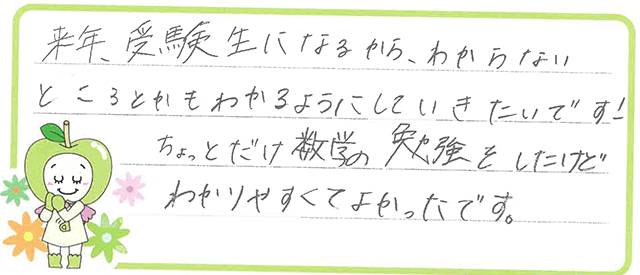 来年、受験生になるから、わからない
ところとかもわかるようにしていきたいです!
ちょっとだけ数学の勉強をしたけど
わかりやすくてよかったです。